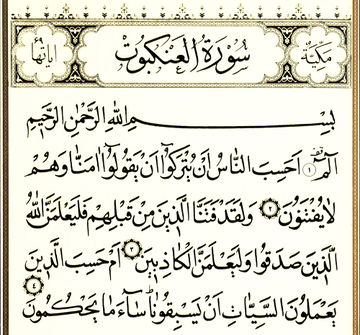 مكية سورة العنكبوت آياتها ٦٩
بسم الله الرحمن الرحيم
الٓمٓ ۝١ اَحَسِبَ النَّاسُ اَنْ يُتْرَكُٓوا اَنْ يَقُولُٓوا اٰمَنَّا وَهُمْ
لَا يُفْتَنُونَ ۝٢ وَلَقَدْ فَتَنَّا الَّذٖينَ مِنْ قَبْلِهِمْ فَلَيَعْلَمَنَّ اللّٰهُ
الَّذٖينَ صَدَقُوا وَلَيَعْلَمَنَّ الْكَاذِبٖينَ ۝٣ اَمْ حَسِبَ الَّذٖينَ
يَعْمَلُونَ السَّيِّـَٔاتِ اَنْ يَسْبِقُونَا سَٓاءَ مَا يَحْكُمُونَ ۝٤